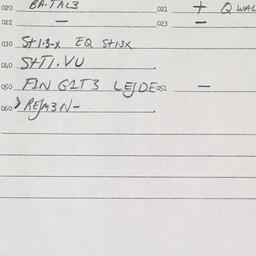 020 BA.TAL3 021 + Q WAL
022 — 023 —
030 St1.3-x EQ St13x
040 StT1.VU
050 FIN G1T3 LEJDE 051 —
060 REJM3N-